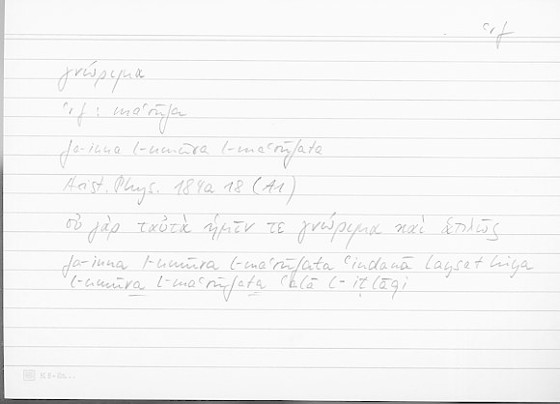 ʿrf
γνώριμα
ʿrf : maʿrūfa
fa-inna l-umūra l-maʿrūfata
Arist. Phys. 184a 18 (A1)
οὐ γὰρ ταὐτὰ ἡμῖν τε γνώριμα καὶ ἁπλῶς
fa-inna l-umūra l-maʿrūfata ʿindanā laysat hiya
l-umūra l-maʿrūfata ʿalā l-iṭlāqi